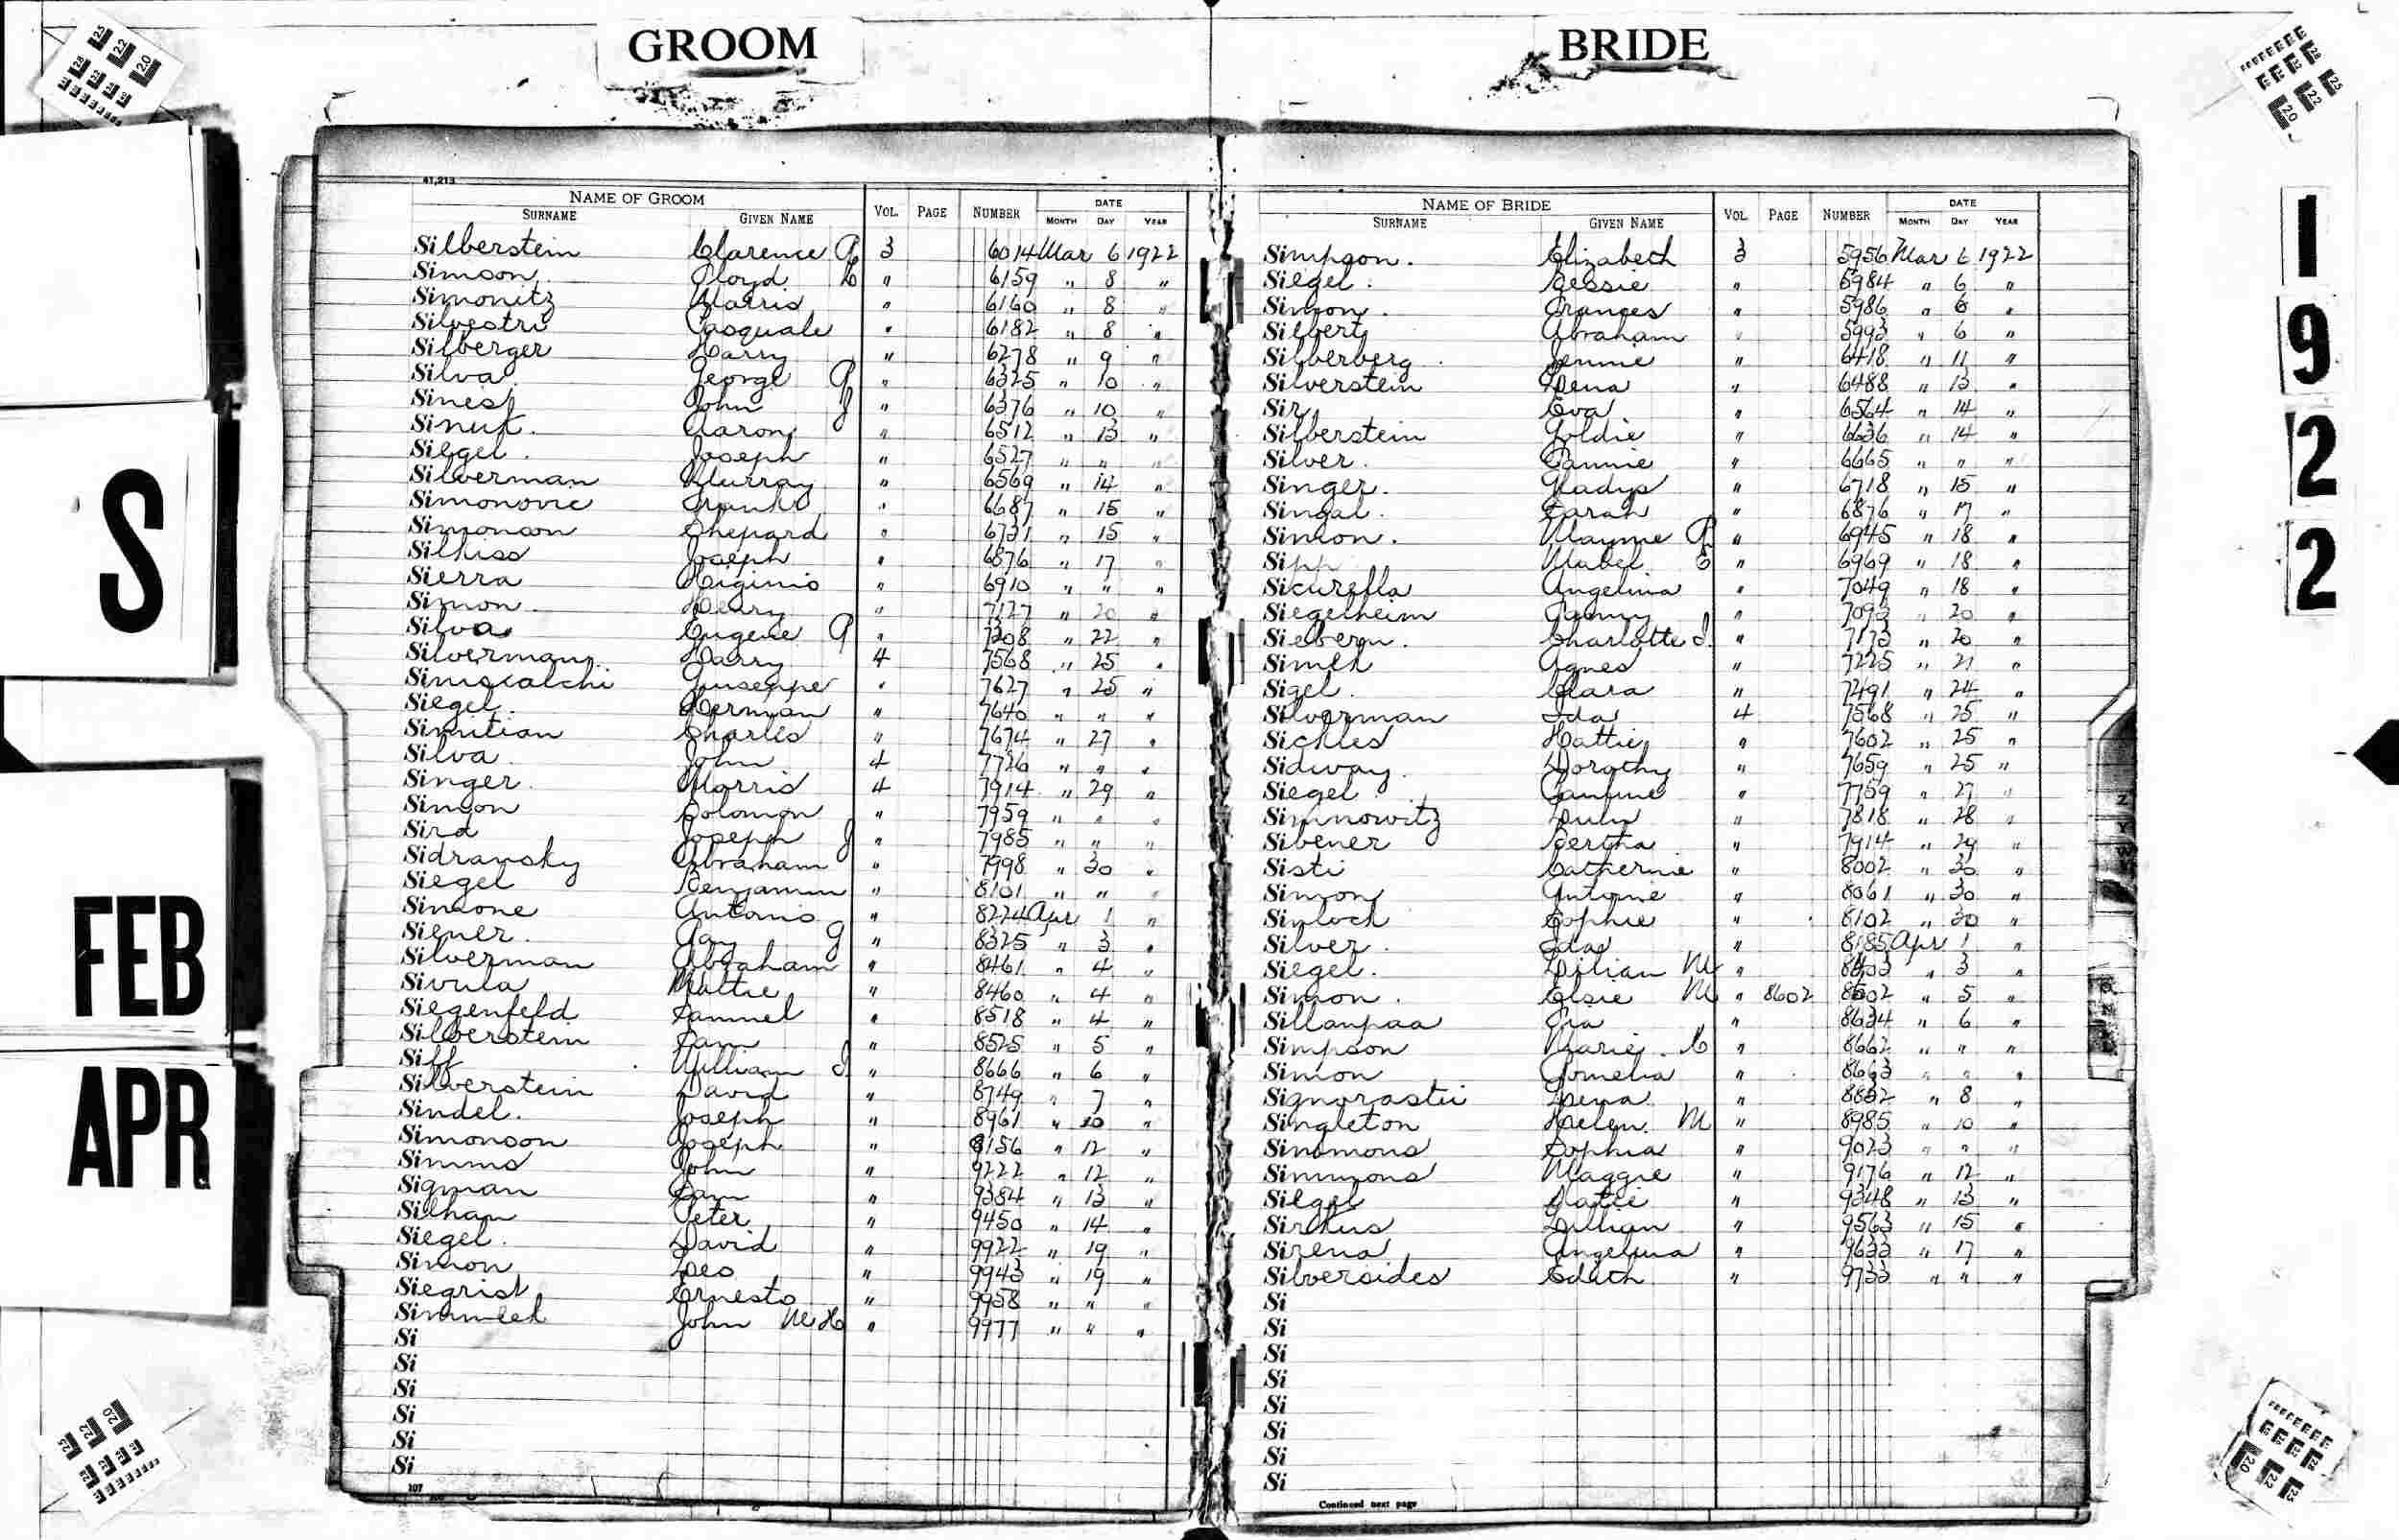 GROOM
BRIDE
1922
S
FEB
APR
41,213
NAME OF GROOM
SURNAME GIVEN NAME VOL. PAGE NUMBER DATE MONTH DAY YEAR
Silberstein Clarence A 3 6014 Mar 6 1922
Simson Floyd L " 6159 " 8 "
Simonitz Morris " 6160 " 8 "
Silvestri Pasquale " 6182 " 8 "
Silberger Harry " 6278 " 9 "
Silva George A " 6325 " 10 "
Sinesi John J " 6376 " 10 "
Sinuk. Aaron " 6512 " 13 "
Siegel. Joseph " 6527 " " "
Silverman Murray " 6569 " 14 "
Simonovic Frank " 6687 " 15 "
Simonson Shepard " 6731 " 15 "
Silkiss Joseph " 6876 " 17 "
Sierra Higinio " 6910 " " "
Simon Henry " 7127 " 20 "
Silva Eugene A " 7308 " 22 "
Silverman Harry 4 7568 " 25 "
Siniscalchi Giuseppe " 7627 " 25 "
Siegel. Herman " 7640 " " "
Simitian Charles " 7674 " 27 "
Silva John 4 7726 " " "
Singer. Morris 4 7914 " 29 "
Simon Solomon " 7959 " " "
Sird Joseph J " 7985 " " "
Sidransky Abraham " 7998 " 30 "
Siegel Benjamin " 8101 " " "
Simone Antonio " 8224 Apr 1 "
Siener. Ray J " 8325 " 3 "
Silverman Abraham " 8461 " 4 "
Sivula Mattie " 8460 " 4 "
Siegenfeld Samuel " 8518 " 4 "
Silberstein Sam " 8525 " 5 "
Siff William I. " 8666 " 6 "
Silverstein David " 8749 " 7 "
Sindel. Joseph " 8961 " 10 "
Simonson Joseph " 8156 " 12 "
Simms John " 9222 " 12 "
Sigman Sam " 9384 " 13 "
Silhan Peter " 9450 " 14 "
Siegel. David " 9922 " 19 "
Simon Leo " 9943 " 19 "
Siegrist Ernesto " 9958 " " "
John M H " 9977 " " "
Si
Si
Si
Si
Si
Si
107
NAME OF BRIDE
SURNAME GIVEN NAME VOL. PAGE NUMBER DATE MONTH DAY YEAR
Simpson. Elizabeth 3 5956 Mar 6 1922
Siegel. Bessie " 5984 " 6 "
Simon. Frances " 5986 " 6 "
Silbert Abraham " 5993 " 6 "
Silberberg Jennie " 6418 " 11 "
Silverstein Lena " 6488 " 13 "
Sir Eva " 6564 " 14 "
Silberstein Goldie " 6636 " 14 "
Silver. Fannie " 6665 " " "
Singer. Gladys " 6718 " 15 "
Singal. Sarah " 6876 " 17 "
Simon. Mayme A " 6945 " 18 "
Sipp Mabel E " 6969 " 18 "
Sicurella Angelina " 7049 " 18 "
Siegelheim Fanny " 7093 " 20 "
Siebern. Charlotte I. " 7173 " 20 "
Simek Agnes " 7225 " 21 "
Sigel. Clara " 7491 " 24 "
Silverman Ida 4 7568 " 25 "
Sickles Hattie " 7602 " 25 "
Sidway. Dorothy " 7659 " 25 "
Siegel " 7759 " 27 "
Simnowitz July " 7818 " 28 "
Sibener Bertha " 7914 " 29 "
Sisti Catherine " 8002 " 30 "
Simon Antoine " 8061 " 30 "
Sinloch Sophie " 8102 " 30 "
Silver. Ida " 8185 Apr 1 "
Siegel. Lilian M " " 3 "
Simon. Elsie M " 8602 8602 " 5 "
Sillanpaa " 8634 " 6 "
Simpson Marie. C " 8662 " " "
Simon " 8663 " " "
Lena " 8832 " 8 "
Singleton Helen M " 8985 " 10 "
Simmons Sophia " 9023 " " "
Simmons Maggie " 9176 " 12 "
Siegel Katie " 9348 " 13 "
Sirkus Lillian " 9563 " 15 "
Sirena Angelina " 9633 " 17 "
Silversides Edith " 9733 " " "
Si
Si
Si
Si
Si
Si
Si
Si
Continued next page